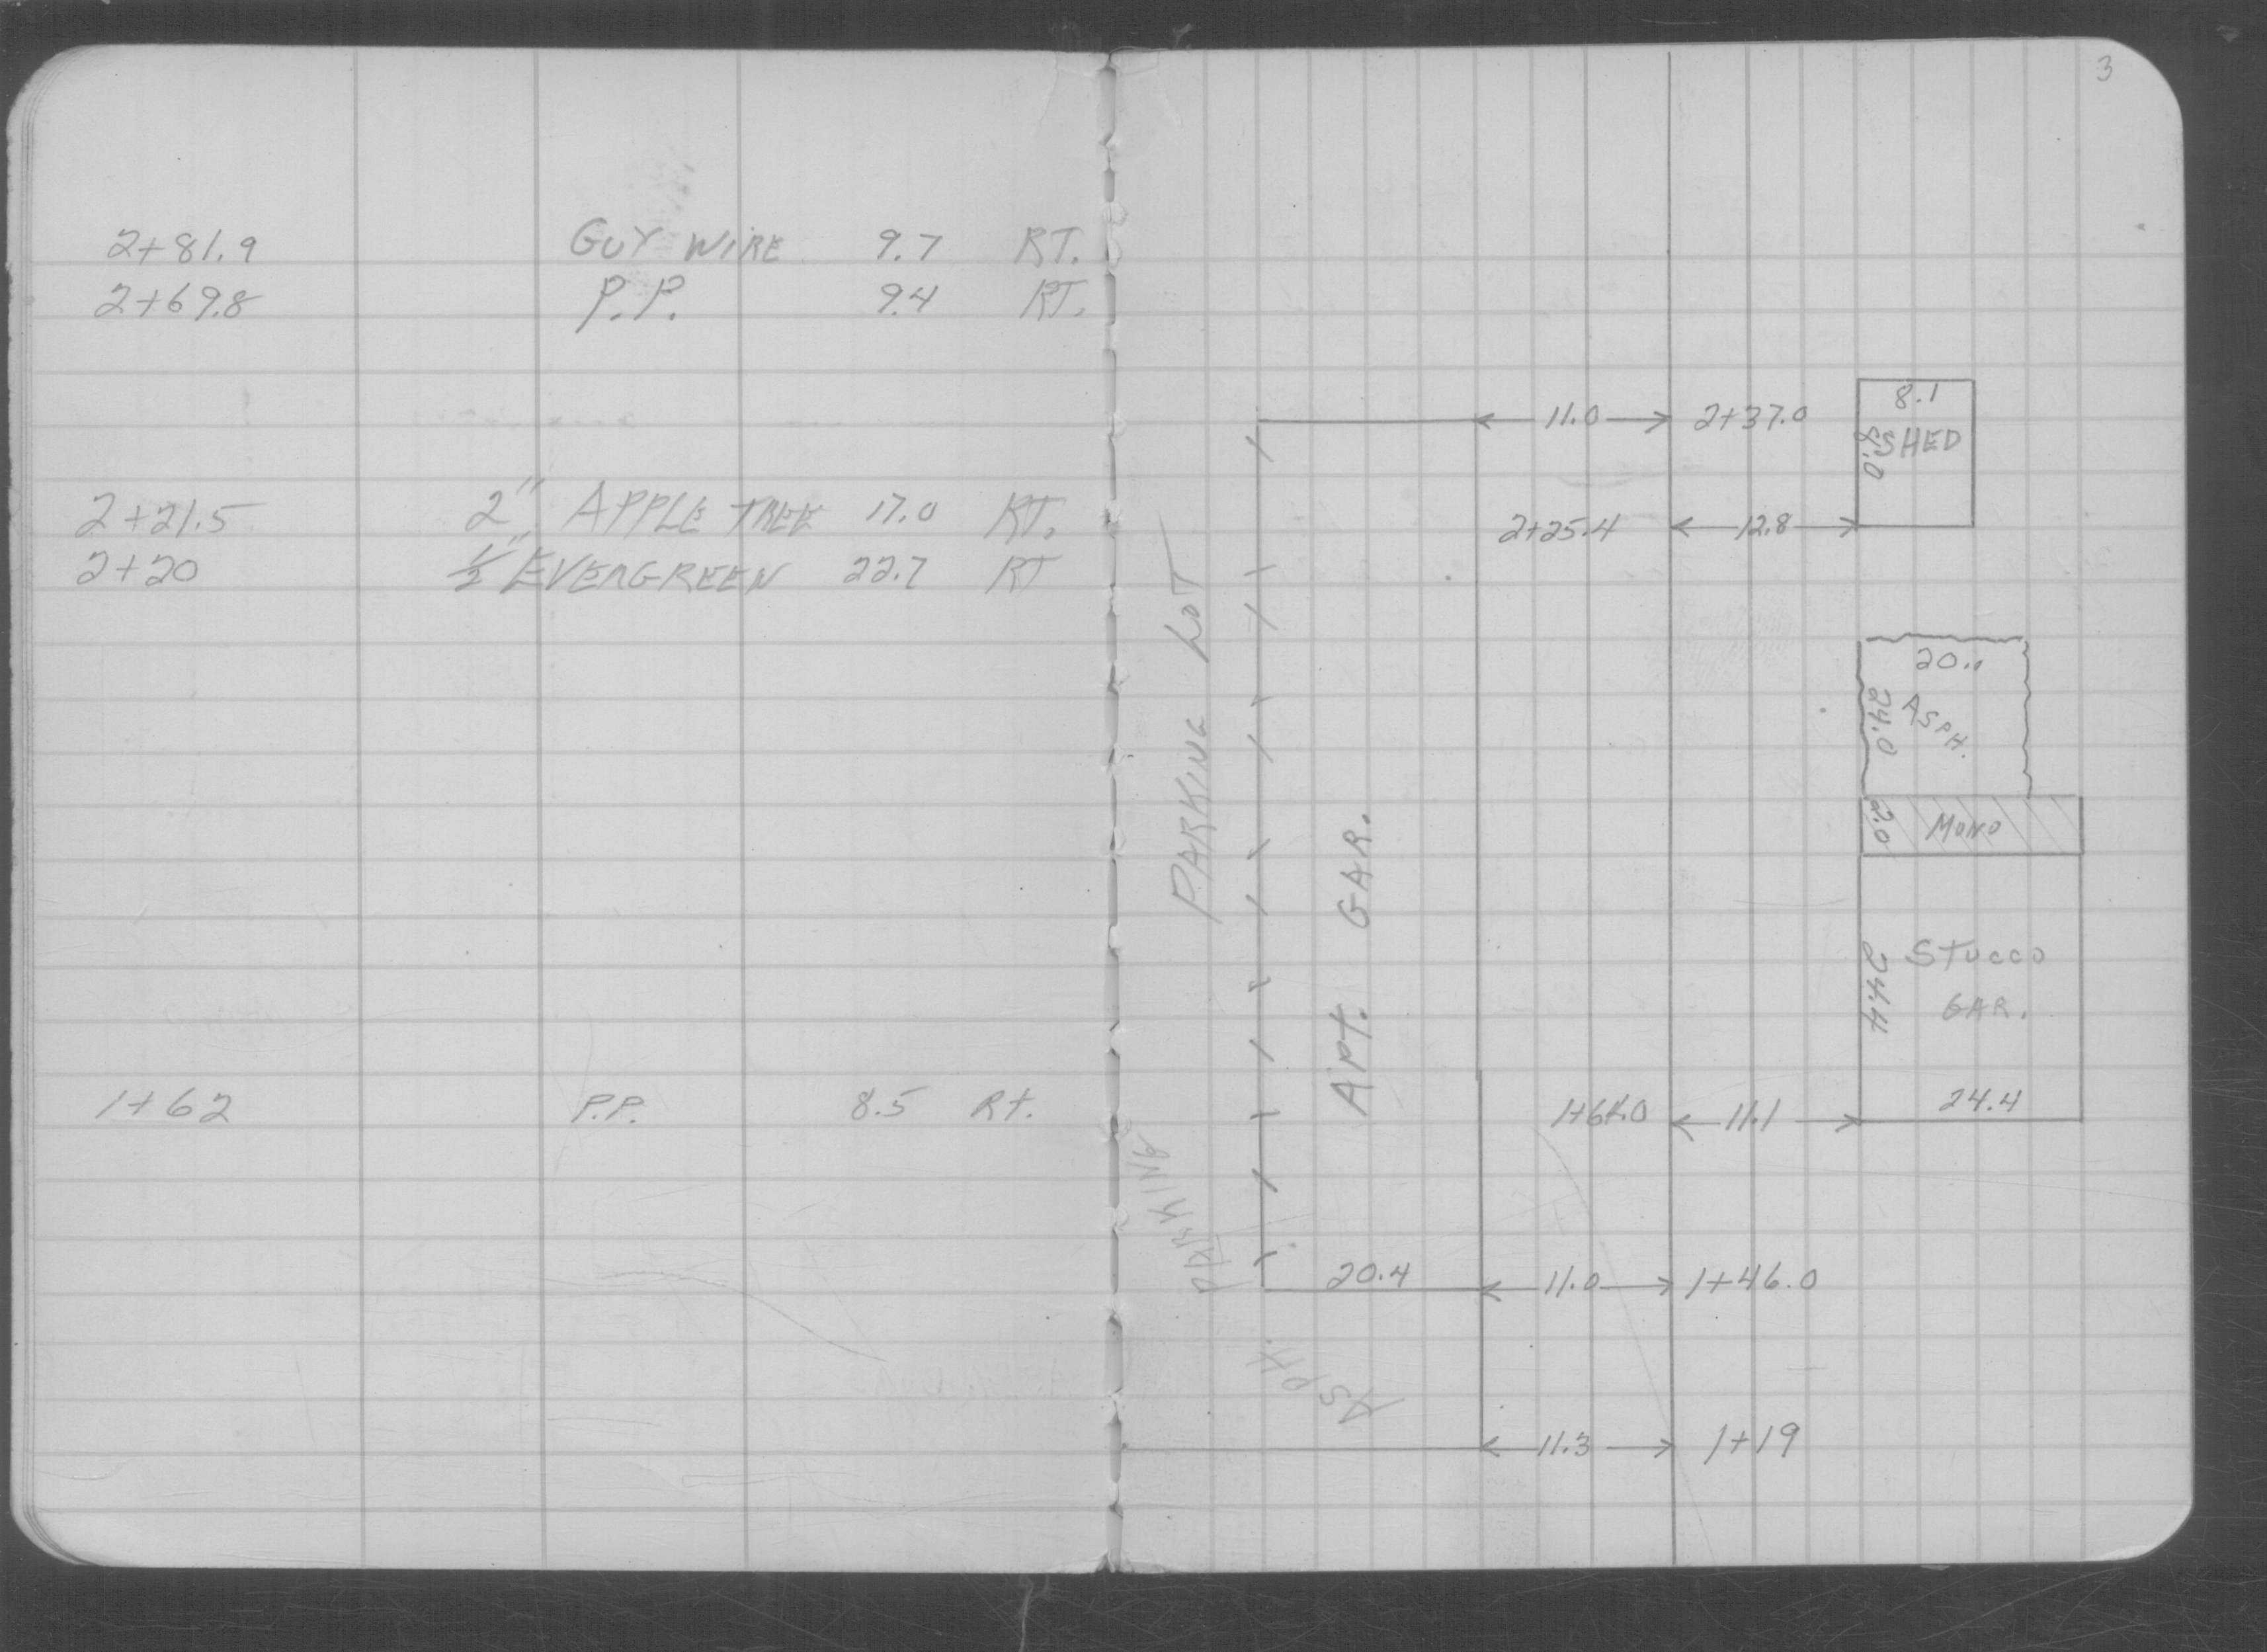 3
2+81.9 GUY WIRE 9.7 RT.
2+69.8 P.P. 9.4 RT.
2+21.5 2" APPLE TREE 17.0 RT.
2+20 1/2" EVERGREEN 22.7 RT
1+62 P.P. 8.5 RT.
11.0 2+37.0
8.1
8.0
SHED
2+25.4 12.8
PARKING LOT
20.
24.0
ASPH.
2.0
MONO
APT. GAR.
24.4
STUCCO
GAR.
24.4
11.1
PARKING
20.4 11.0 1+46.0
ASPH.
11.3 1+19